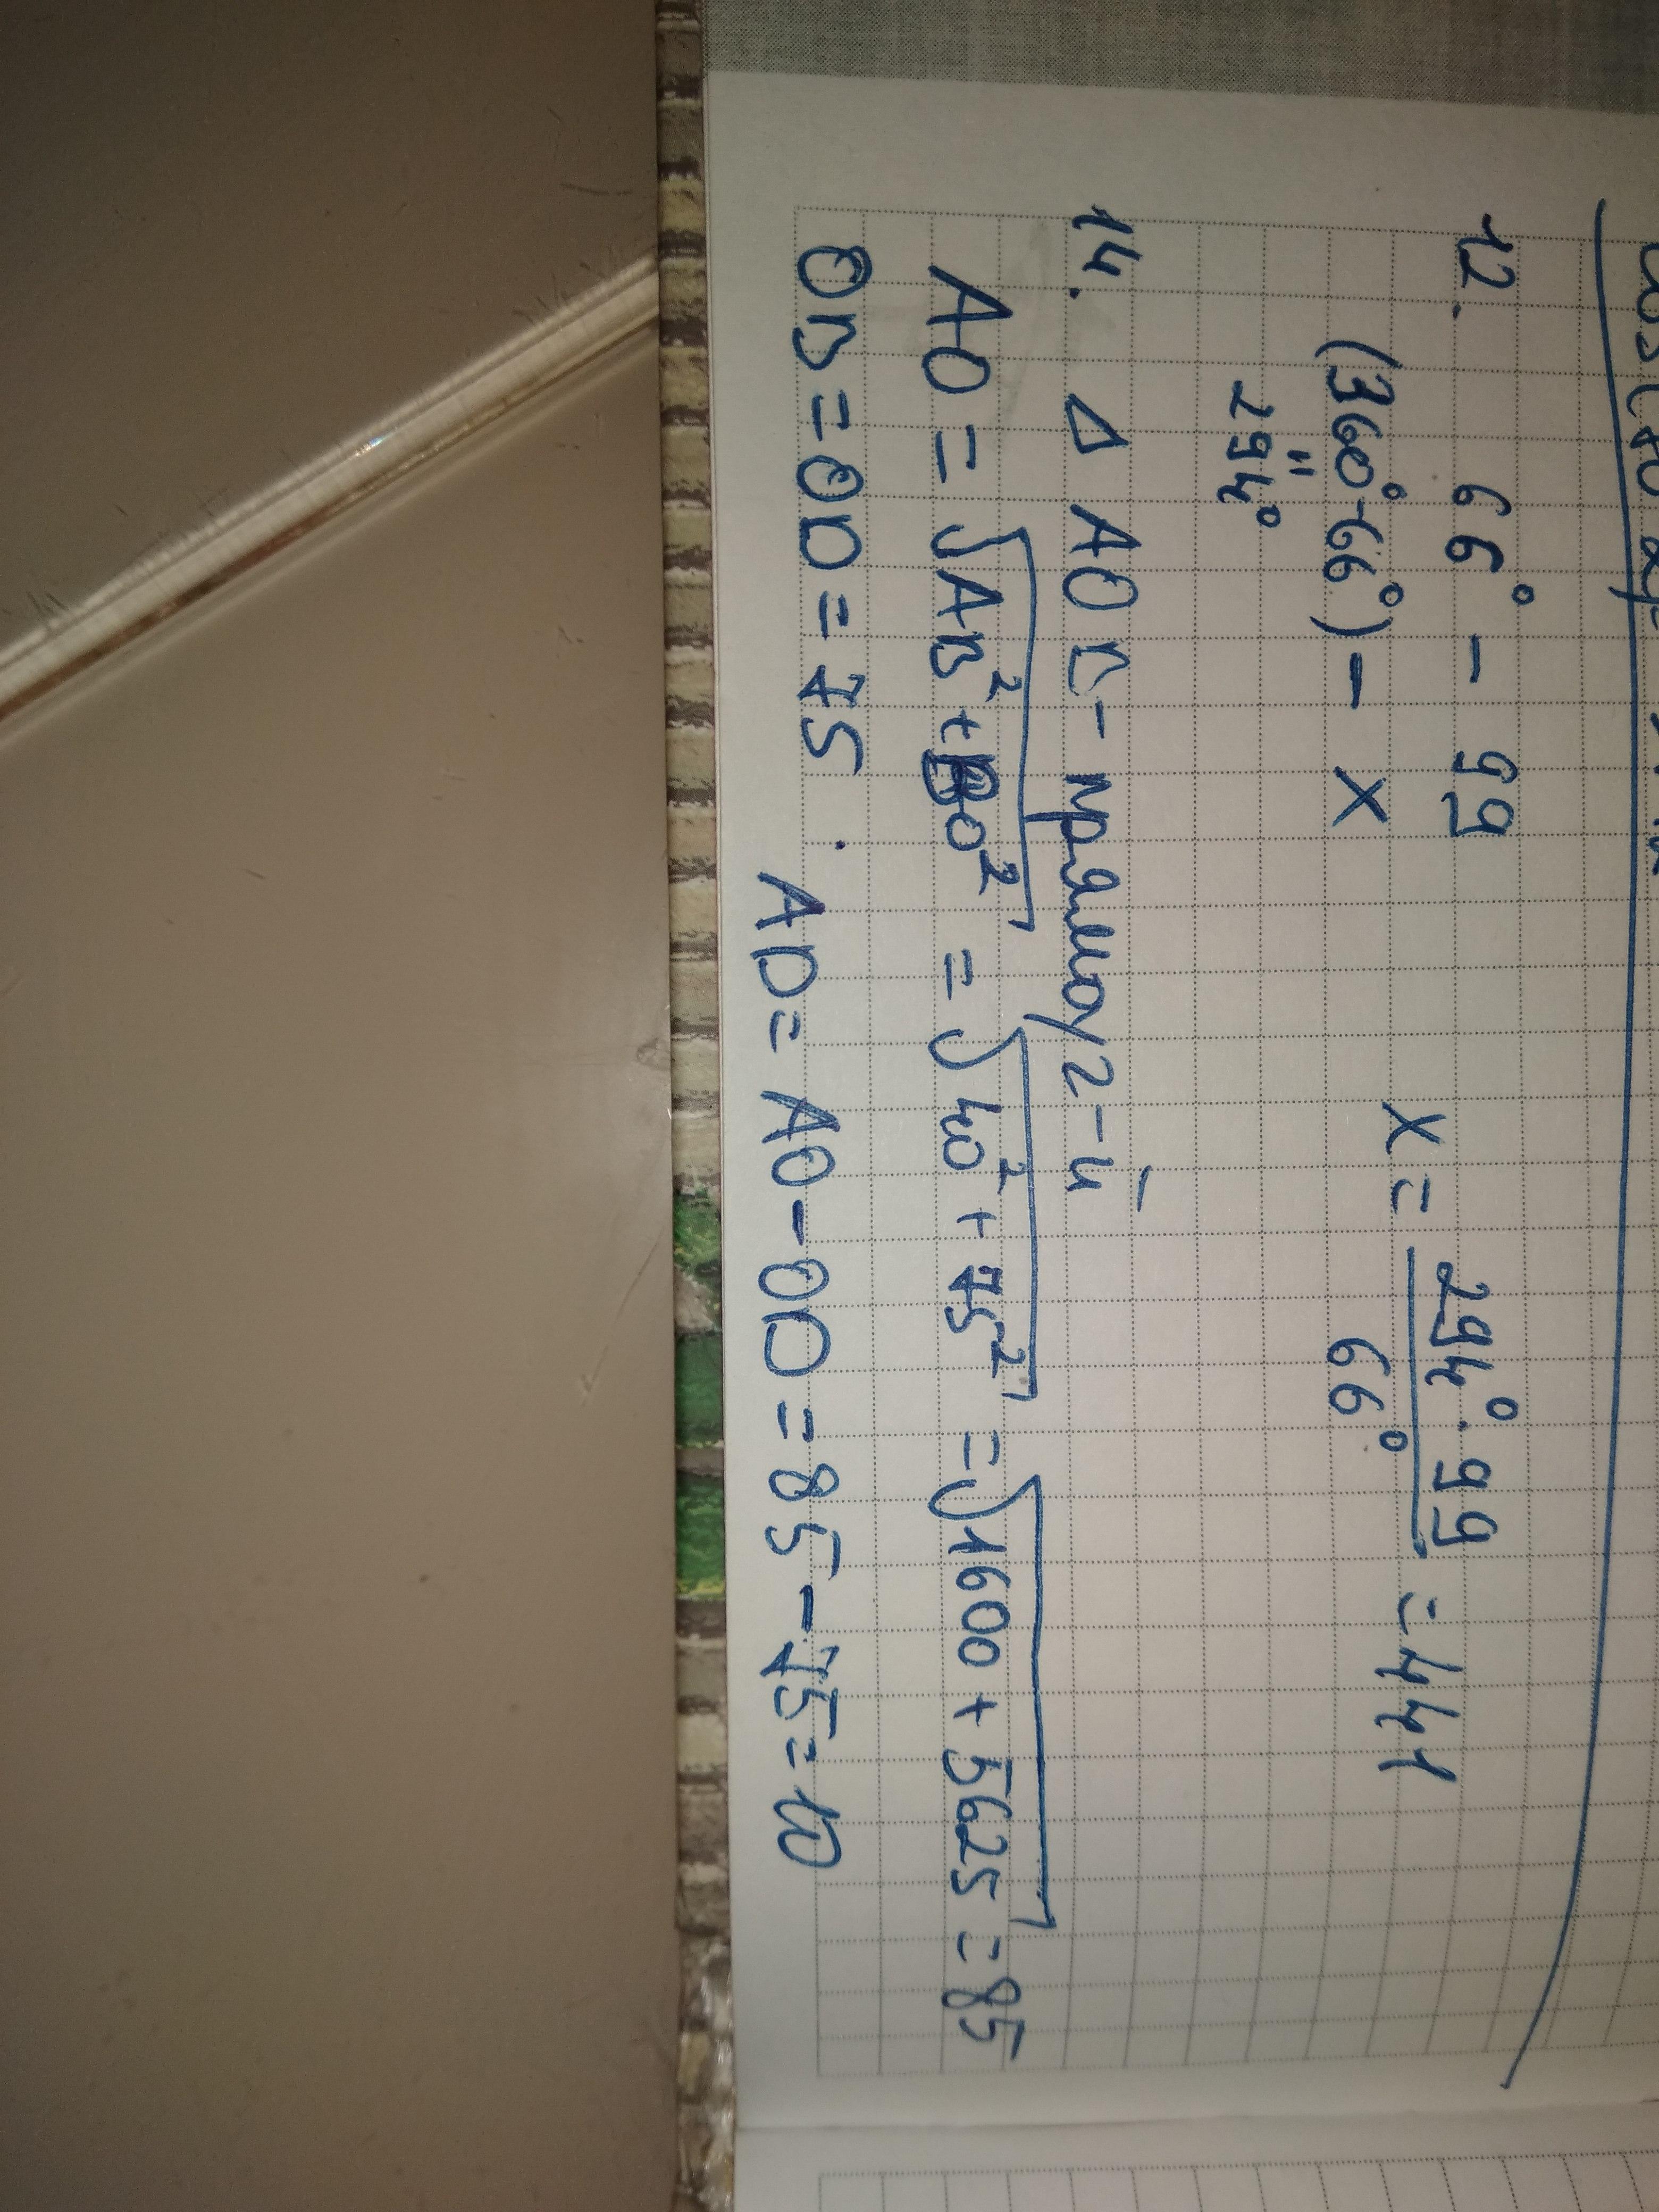 12. 66° - 99
(360°-66°) - x x = 294°·99 / 66° = 441
"
294°
14. Δ AOB - прямоуг-й
AO = √AB²+BO² = √40²+75² = √1600+5625 = 85
OB=OD=75. AD=AO-OD=85-75=10